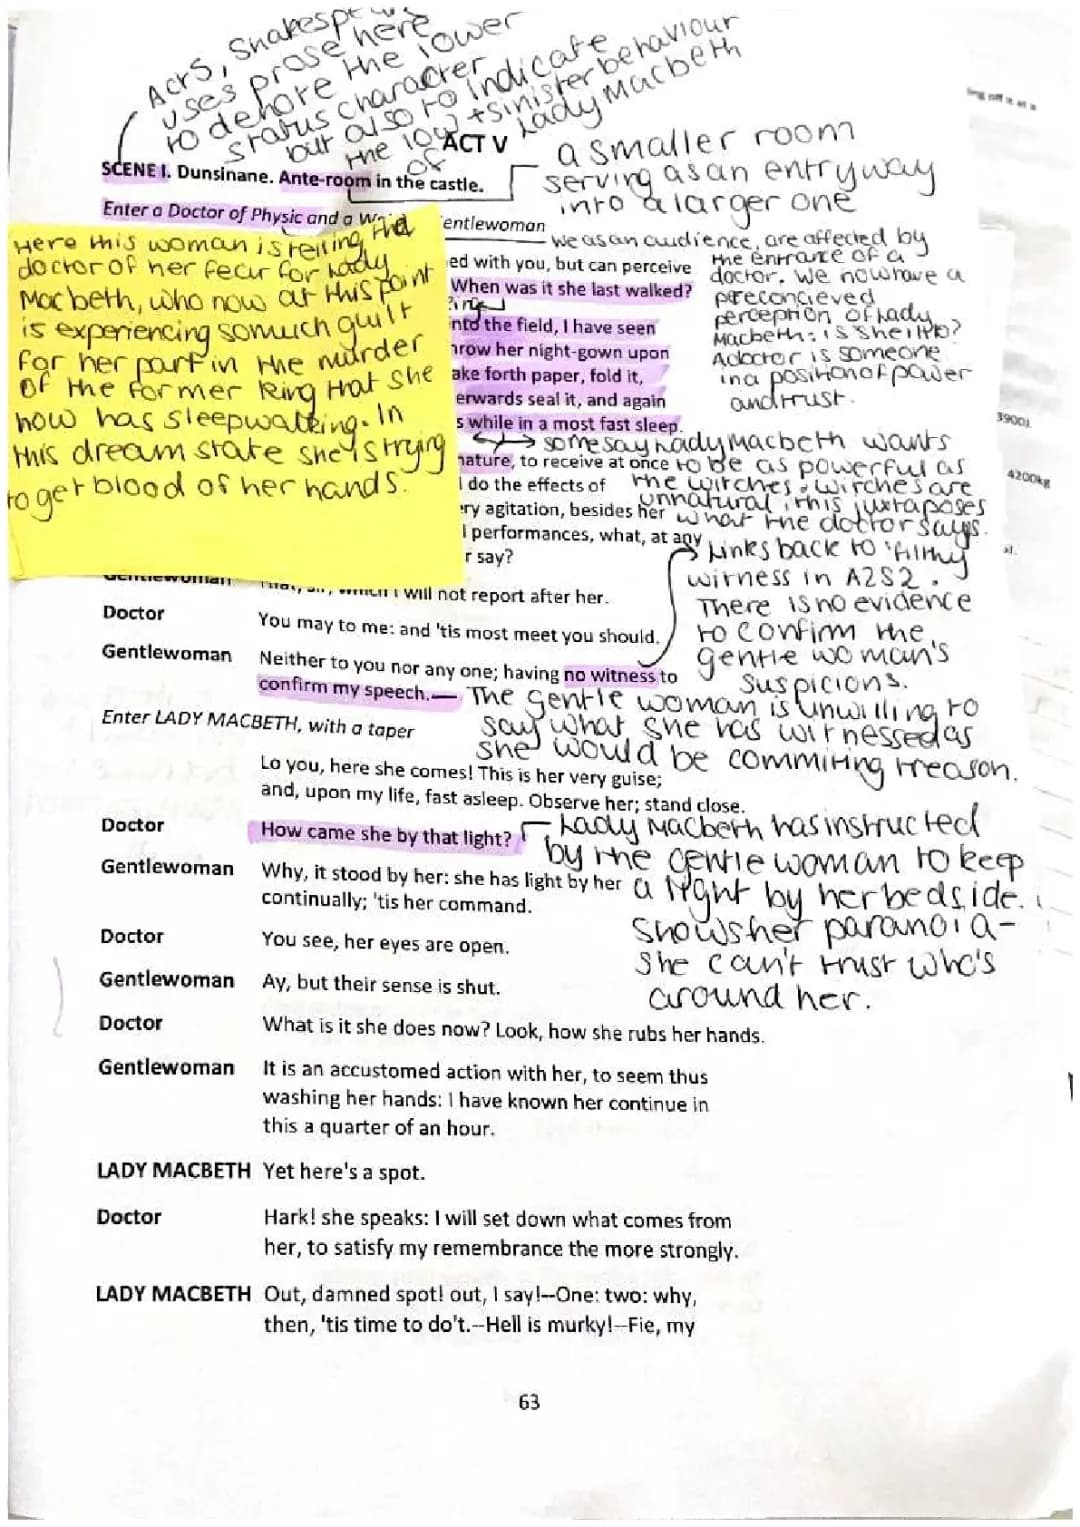 Acts, Shakespe
uses prose here
to denote the lower
status character
but also to indicate
the low + sinister behaviour
of Lady Macbeth
ACT V
SCENE I. Dunsinane. Ante-room in the castle.
a smaller room
serving as an entryway
into a larger one
Enter a Doctor of Physic and a W entlewoman
Here this woman is telling the
doctor of her fear for Lady
Macbeth, who now at this point
is experiencing so much guilt
for her part in the murder
of the former king that she
now has sleepwalking. In
this dream state she is trying
to get blood of her hands.
we as an audience, are affected by
the entrance of a
doctor. We now have a
preconcieved
perception of Lady
Macbeth: is she ill?
A doctor is someone
in a position of power
and trust.
ed with you, but can perceive
When was it she last walked?
nto the field, I have seen
hrow her night-gown upon
ake forth paper, fold it,
erwards seal it, and again
s while in a most fast sleep.
some say Lady Macbeth wants
to be as powerful as
the witches. Witches are
unnatural, this juxtaposes
what the doctor says.
nature, to receive at once
I do the effects of
ry agitation, besides her
l performances, what, at any
r say?
Links back to 'filthy
witness in A2S2.
There is no evidence
to confirm the
gentle woman's
suspicions.
Gentlewoman That, sir, which I will not report after her.
Doctor You may to me: and 'tis most meet you should.
Gentlewoman Neither to you nor any one; having no witness to
confirm my speech.
The gentle woman is unwilling to
say what she has witnessed as
she would be commiting treason.
Enter LADY MACBETH, with a taper
Lo you, here she comes! This is her very guise;
and, upon my life, fast asleep. Observe her; stand close.
Doctor How came she by that light?
Lady Macbeth has instructed
by the gentle woman to keep
a light by her bedside.
Shows her paranoia-
she can't trust who's
around her.
Gentlewoman Why, it stood by her: she has light by her
continually; 'tis her command.
Doctor You see, her eyes are open.
Gentlewoman Ay, but their sense is shut.
Doctor What is it she does now? Look, how she rubs her hands.
Gentlewoman It is an accustomed action with her, to seem thus
washing her hands: I have known her continue in
this a quarter of an hour.
LADY MACBETH Yet here's a spot.
Doctor Hark! she speaks: I will set down what comes from
her, to satisfy my remembrance the more strongly.
LADY MACBETH Out, damned spot! out, I say!--One: two: why,
then, 'tis time to do't.--Hell is murky!--Fie, my
63
3900J
4200kg